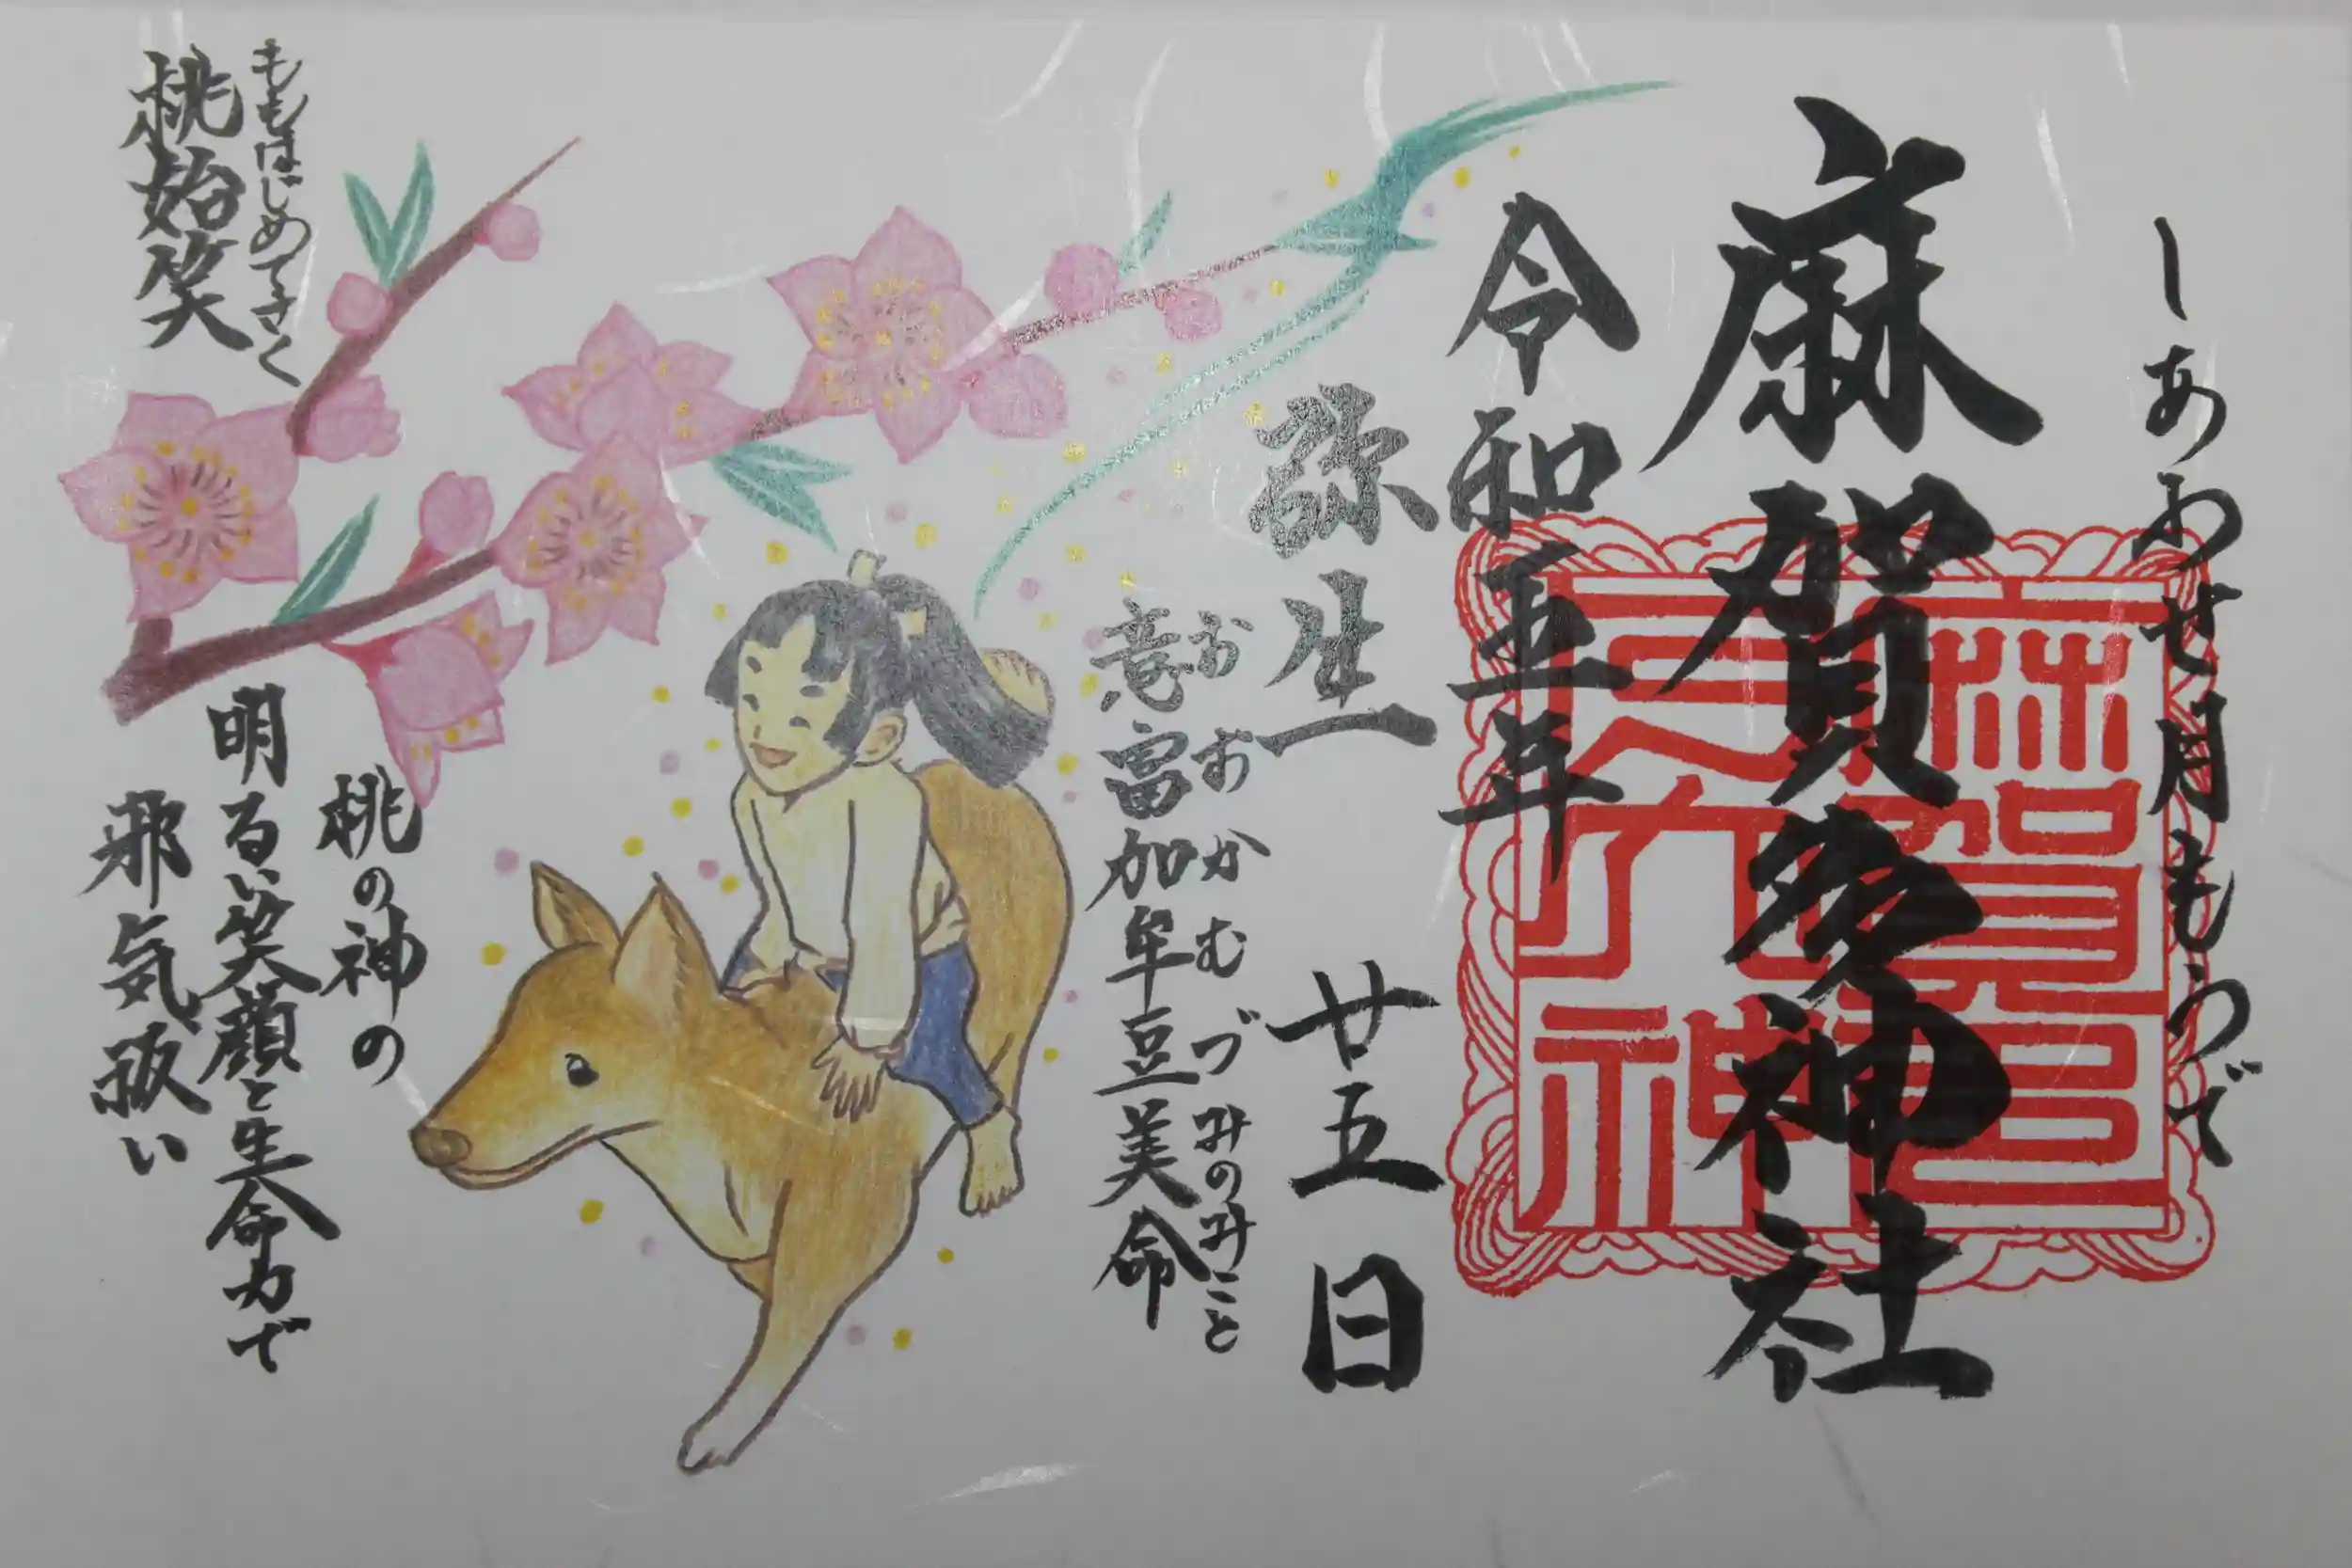 しあわせ月もうで
麻賀多神社
令和五年
弥生
廿五日
おおかむづみのみこと
意富加牟豆美命
ももはじめてさく
桃始笑
桃の神の
明るい笑顔と生命力で
邪気祓い
麻賀多
大神